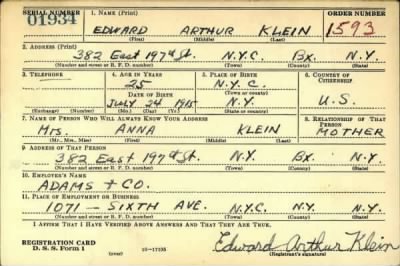 SERIAL NUMBER 1. NAME (Print) ORDER NUMBER
01934 EDWARD ARTHUR KLEIN 1593
(First) (Middle) (Last)
2. ADDRESS (Print)
382 East 197th St. N.Y.C. Bx. N.Y.
(Number and street or R. F. D. number) (Town) (County) (State)
3. TELEPHONE 4. AGE IN YEARS 5. PLACE OF BIRTH 6. COUNTRY OF CITIZENSHIP
25 N.Y.C.
DATE OF BIRTH (Town or county)
JULY 24 1915 N.Y. U.S.
(Exchange) (Number) (Mo.) (Day) (Yr.) (State or country)
7. NAME OF PERSON WHO WILL ALWAYS KNOW YOUR ADDRESS 8. RELATIONSHIP OF THAT PERSON
Mrs. ANNA KLEIN MOTHER
(Mr., Mrs., Miss) (First) (Middle) (Last)
9. ADDRESS OF THAT PERSON
382 East 197th St. N.Y. Bx. N.Y.
(Number and street or R. F. D. number) (Town) (County) (State)
10. EMPLOYER'S NAME
ADAMS + CO.
11. PLACE OF EMPLOYMENT OR BUSINESS
1071 — SIXTH AVE. N.Y.C. N.Y. N.Y.
(Number and street or R. F. D. number) (Town) (County) (State)
I AFFIRM THAT I HAVE VERIFIED ABOVE ANSWERS AND THAT THEY ARE TRUE.
REGISTRATION CARD
D. S. S. Form 1 16—17105 Edward Arthur Klein
(Registrant's signature)